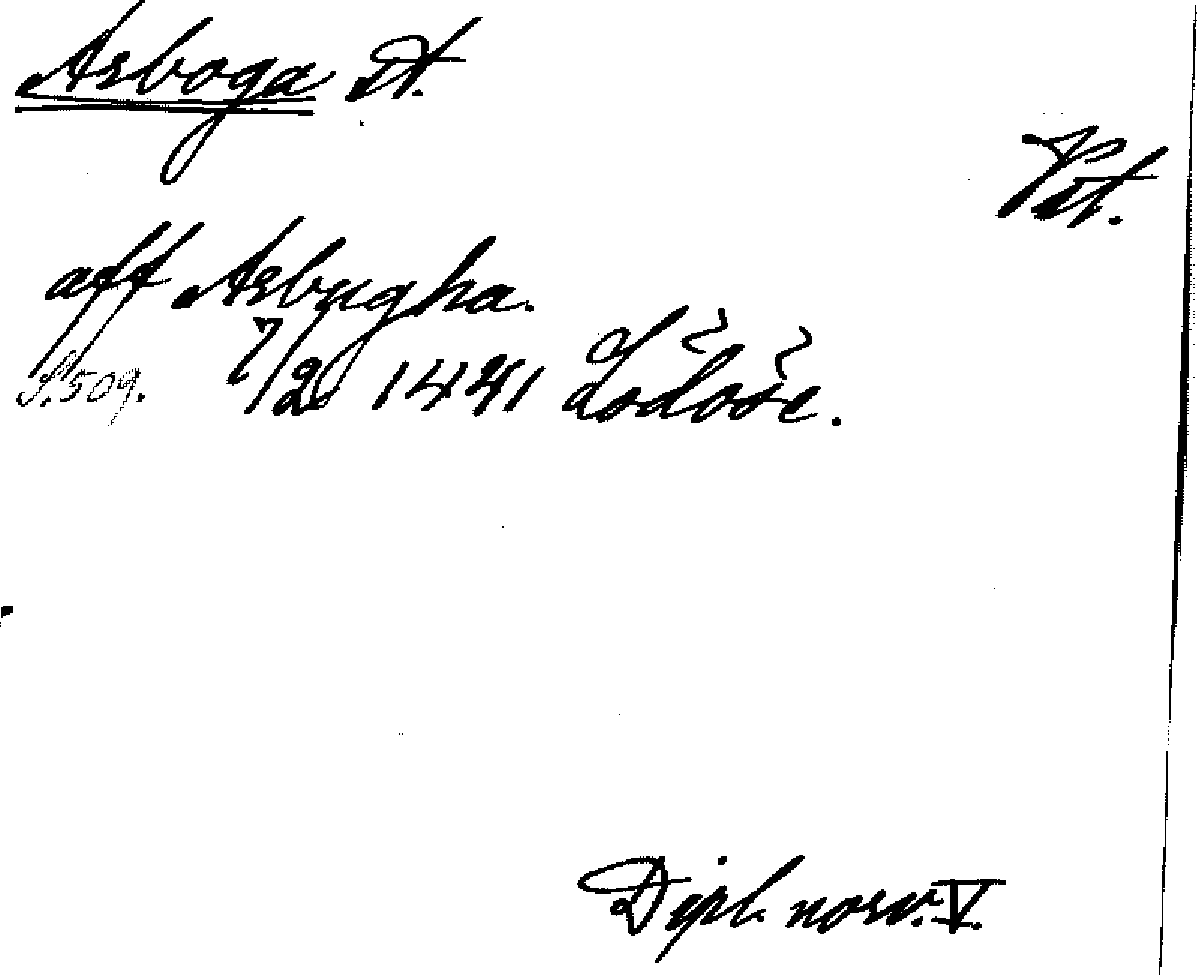 Arboga St.
Vst.
aff Arbugha.
S. 509. 7/2 1441 Lödöse.
Dipl. norv. V.